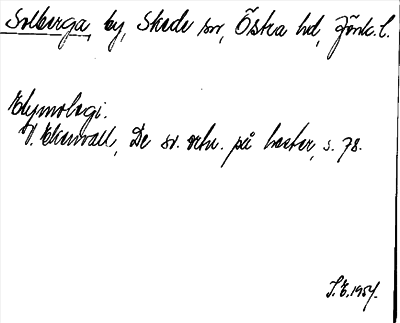 Solberga, by, Skede sn, Östra hd, Jönk. l.
Etymologi.
V. Ekenvall, De sv. ortn. på hester, s. 78.
S. E. 1954.